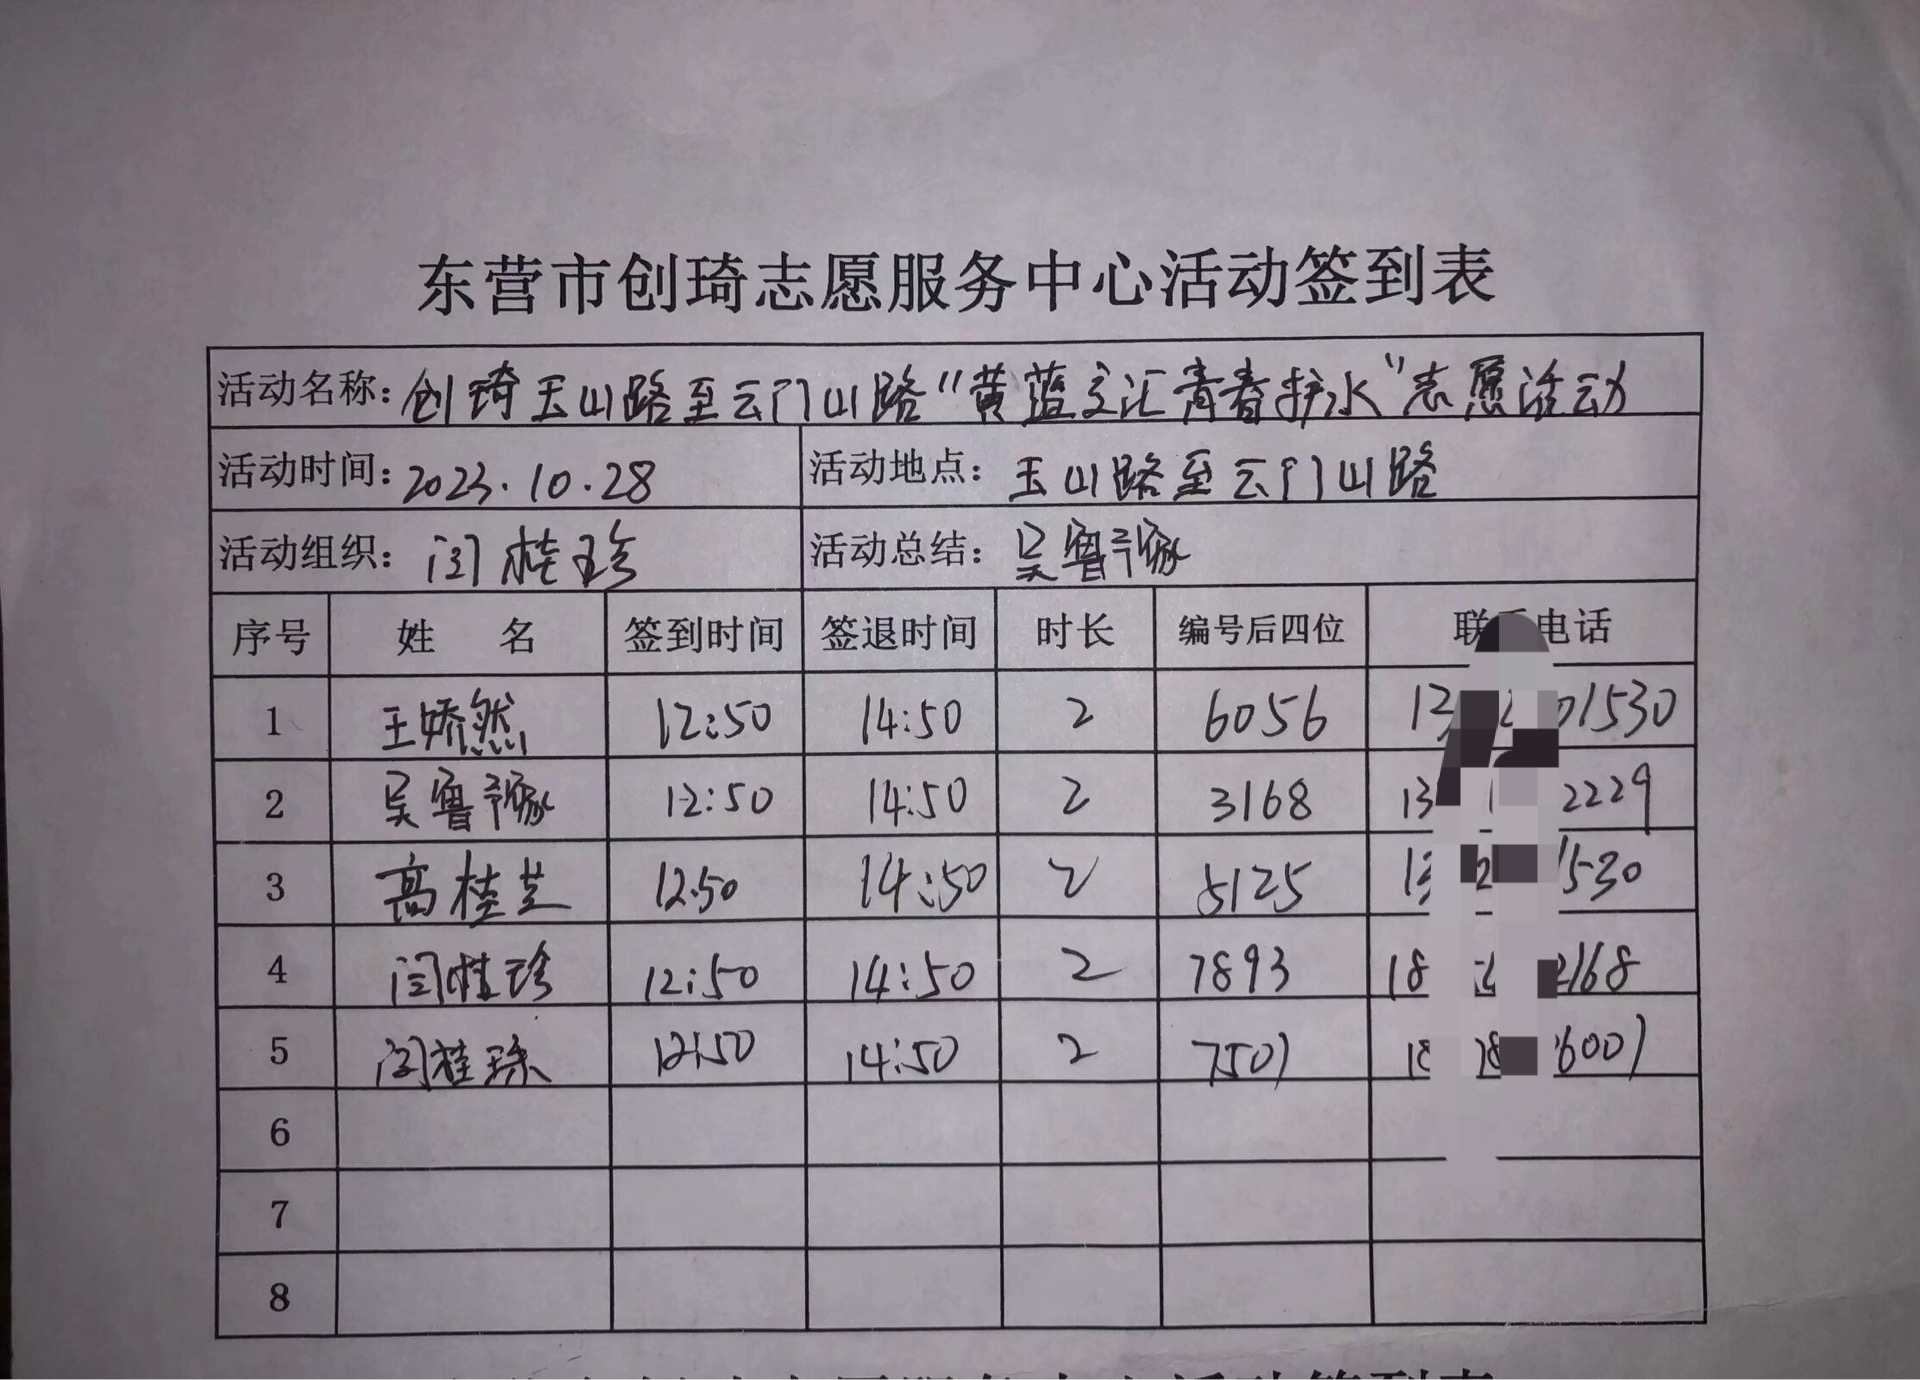 东营市创琦志愿服务中心活动签到表
活动名称: 创琦玉山路至云门山路“黄蓝交汇青春护水”志愿活动
活动时间: 2023.10.28 活动地点: 玉山路至云门山路
活动组织: 闫桂珍 活动总结: 吴鲁豫
序号 姓 名 签到时间 签退时间 时长 编号后四位 联 电话
1 王娇然 12:50 14:50 2 6056 13 01530
2 吴鲁豫 12:50 14:50 2 3168 13 2229
3 高桂芝 12:50 14:50 2 5125 13 1530
4 闫桂珍 12:50 14:50 2 7893 18 2168
5 闫桂珠 12:50 14:50 2 7501 18 6001
6
7
8